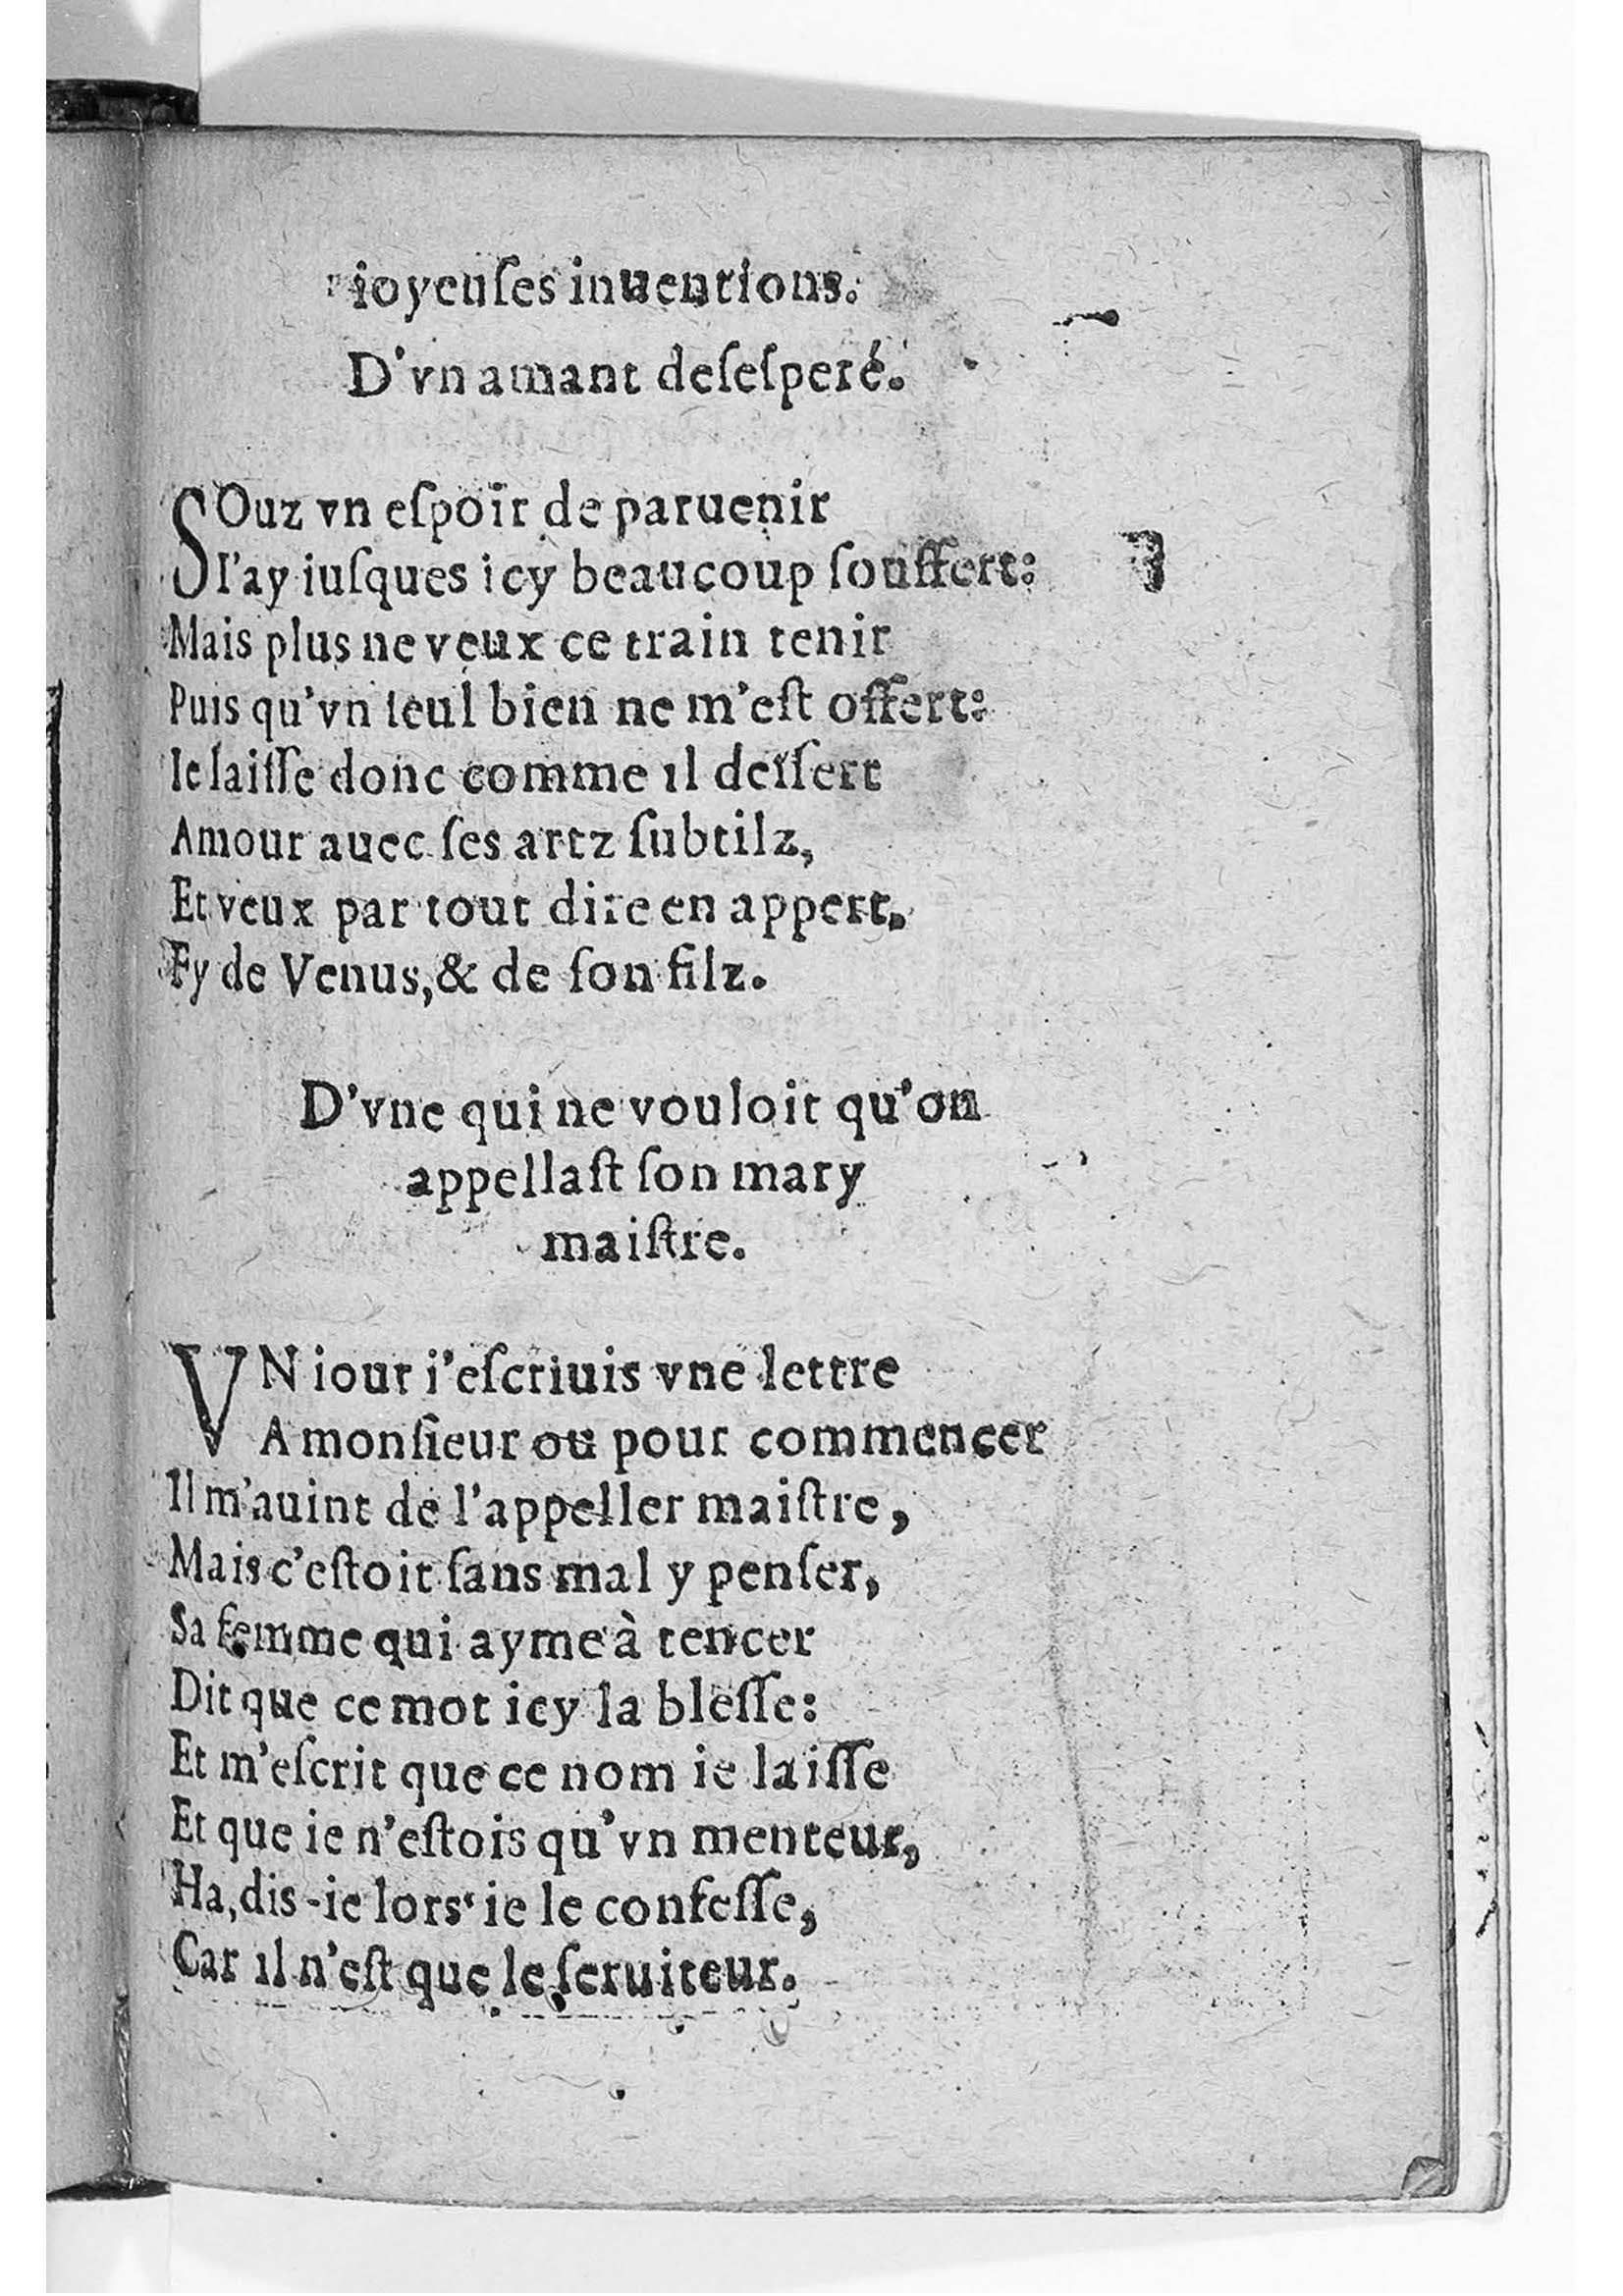 ioyeuſes inuentions.
D'vn amant deſeſperé.
SOuz vn eſpoir de paruenir
I'ay iuſques icy beaucoup ſouffert:
Mais plus ne veux ce train tenir
Puis qu'vn ſeul bien ne m'eſt offert:
Ie laiſſe donc comme il deſſert
Amour auec ſes artz ſubtilz,
Et veux par tout dire en appert.
Fy de Venus, & de ſon filz.
D'vne qui ne vouloit qu'on
appellaſt ſon mary
maiſtre.
VN iour i'eſcriuis vne lettre
A monſieur ou pour commencer
Il m'auint de l'appeller maiſtre,
Mais c'eſtoit ſans mal y penſer,
Sa femme qui ayme à tencer
Dit que ce mot icy la bleſſe:
Et m'eſcrit que ce nom ie laiſſe
Et que ie n'eſtois qu'vn menteur,
Ha, dis-ie lors ie le confeſſe,
Car il n'eſt que le ſeruiteur.